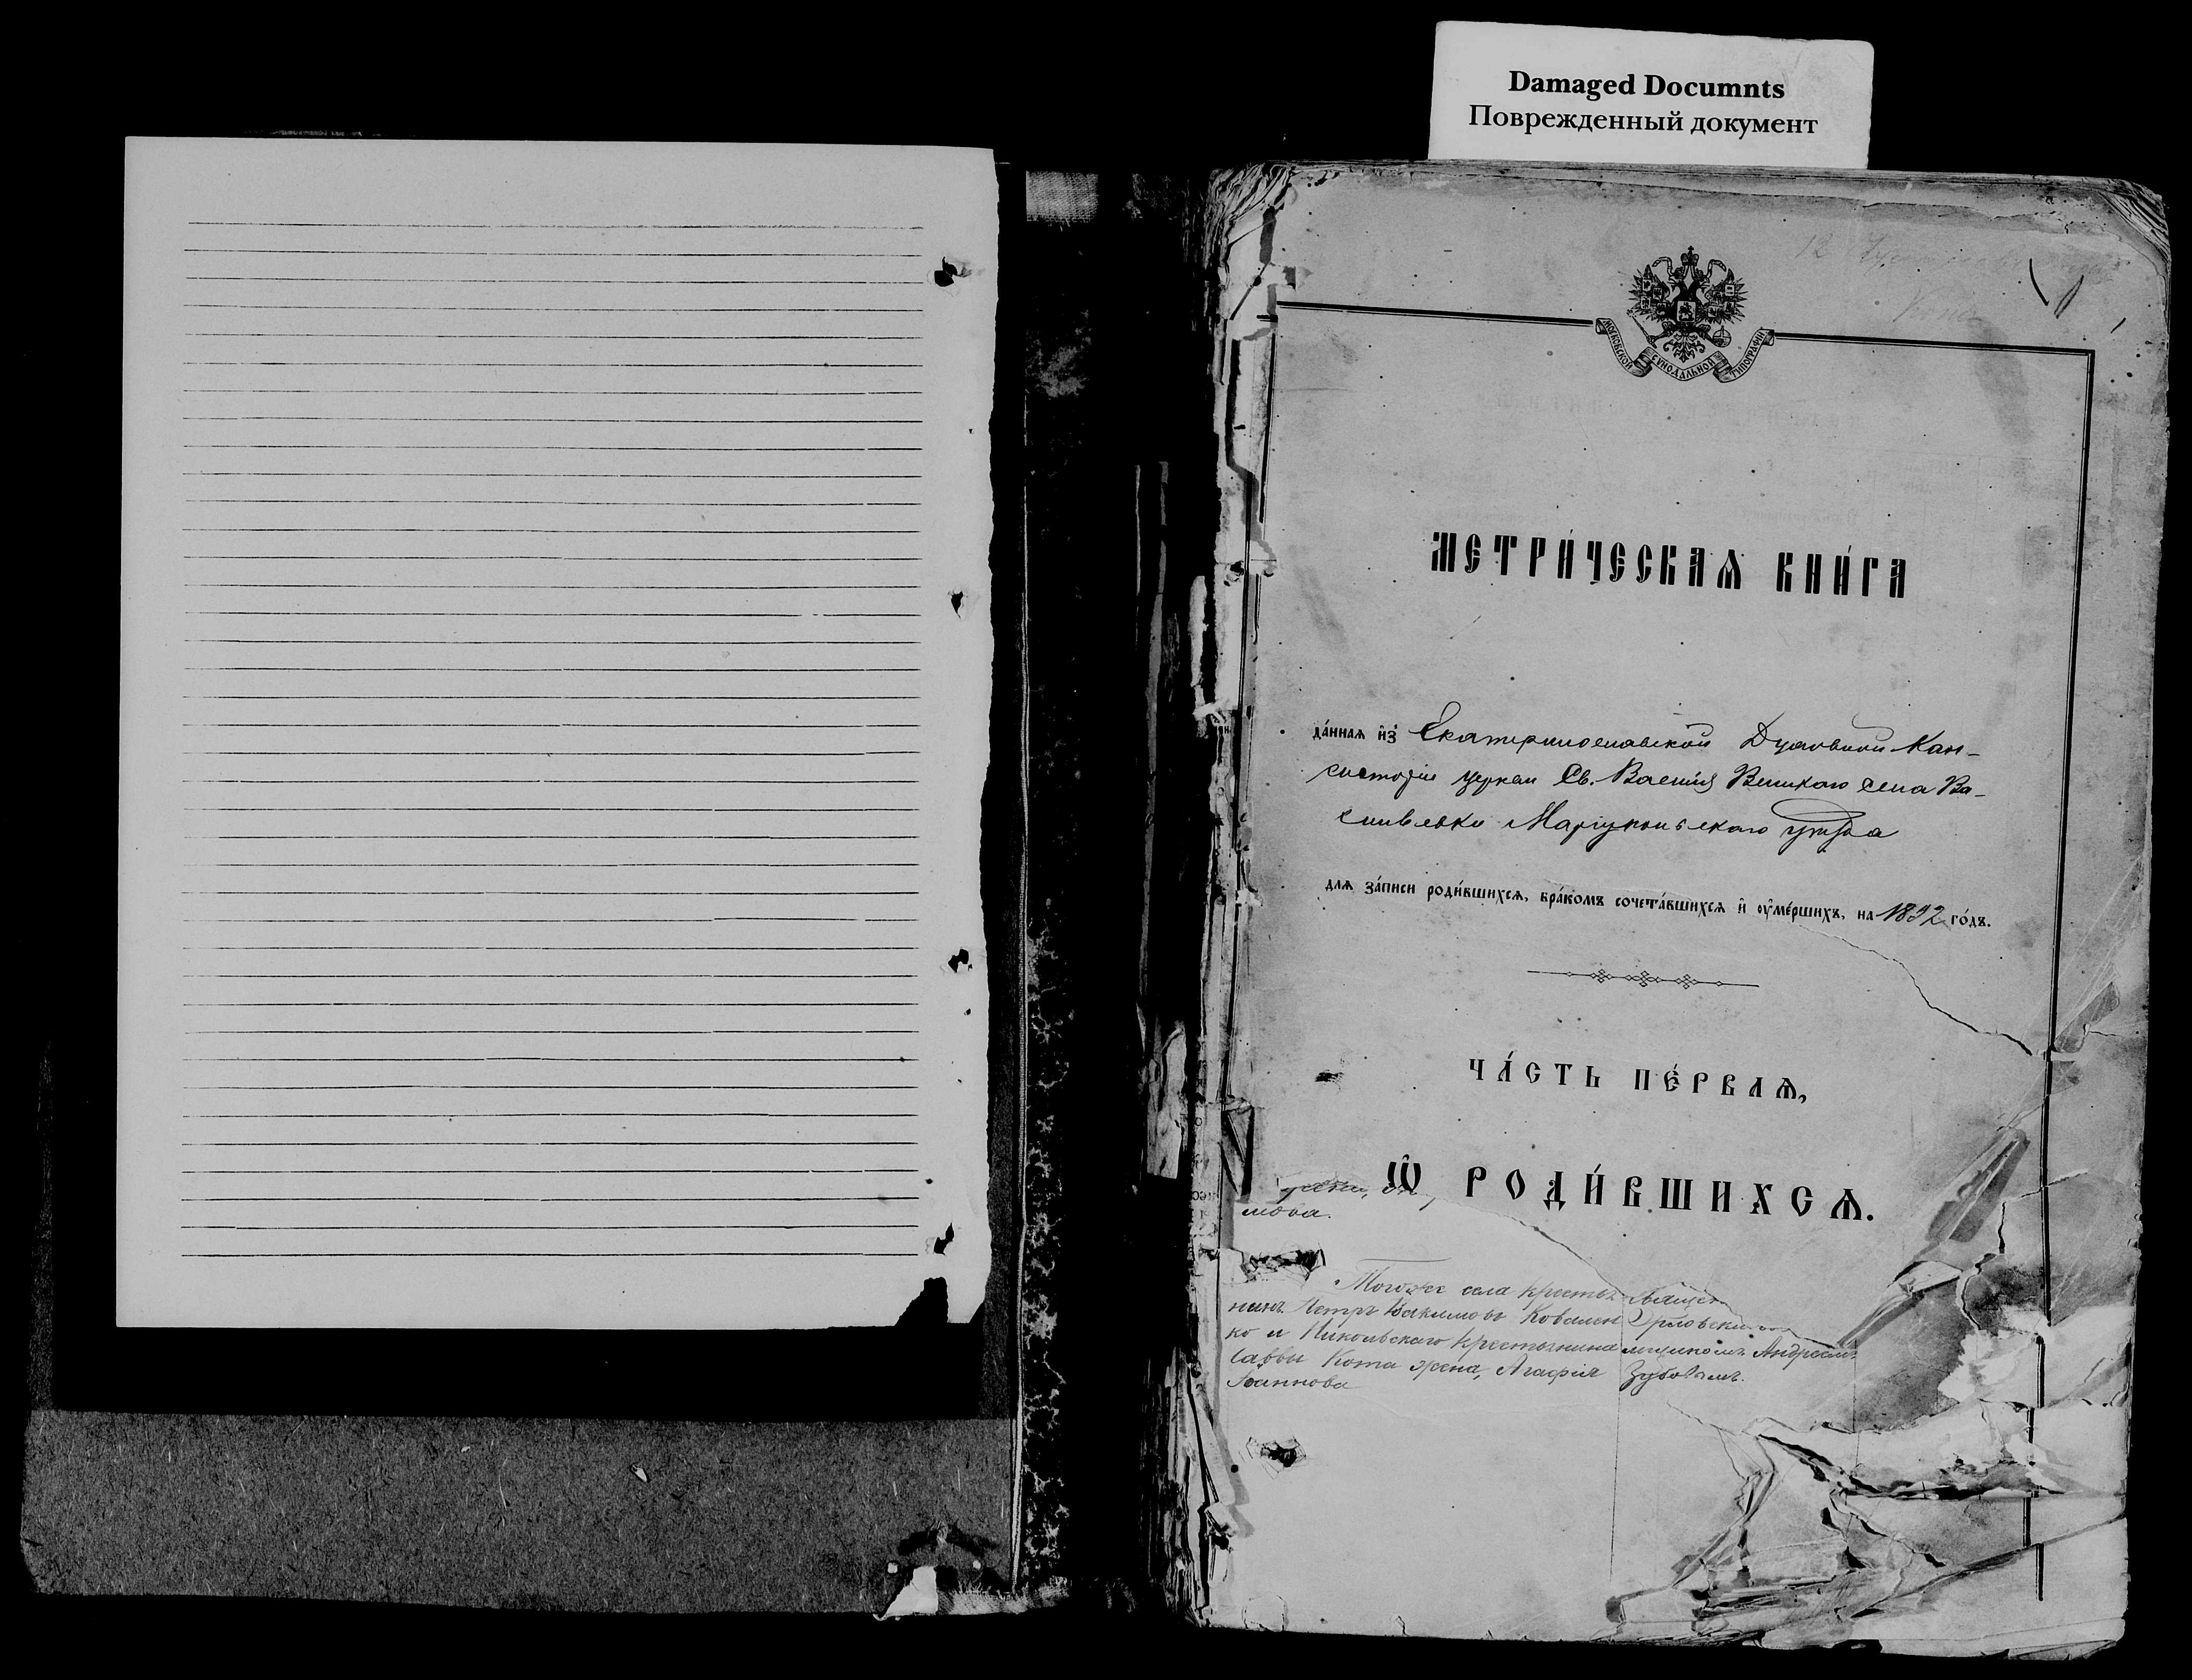 Damaged Documnts
Поврежденный документ
МОСКОВСКОЙ СУНОДАЛЬНОЙ ТИПОГРАФІИ
12
МЕТРИ́ЧЕСКАѦ КНИ́ГА
да́ннаѧ и҆з̾ Екатеринославской Духовной Кон-
систоріи церкви Св. Василія Великаго села Ва-
сильевки Маріупольскаго уѣзда
длѧ за́писи роди́вшихсѧ, бра́комъ сочета́вшихсѧ и҆ ѹ҆ме́ршихъ, на 1892 го́дъ.
ЧА́СТЬ ПЕ́РВАѦ,
Ѽ РОДИ́ВШИХСѦ.
мова.
Тогоже села крестья
нинъ Петръ Іоакимовъ Ковален
ко и Никольскаго крестьянина
Саввы Кота жена, Агафія
Іоаннова
Орловски
Андреемъ
Зубовымъ.